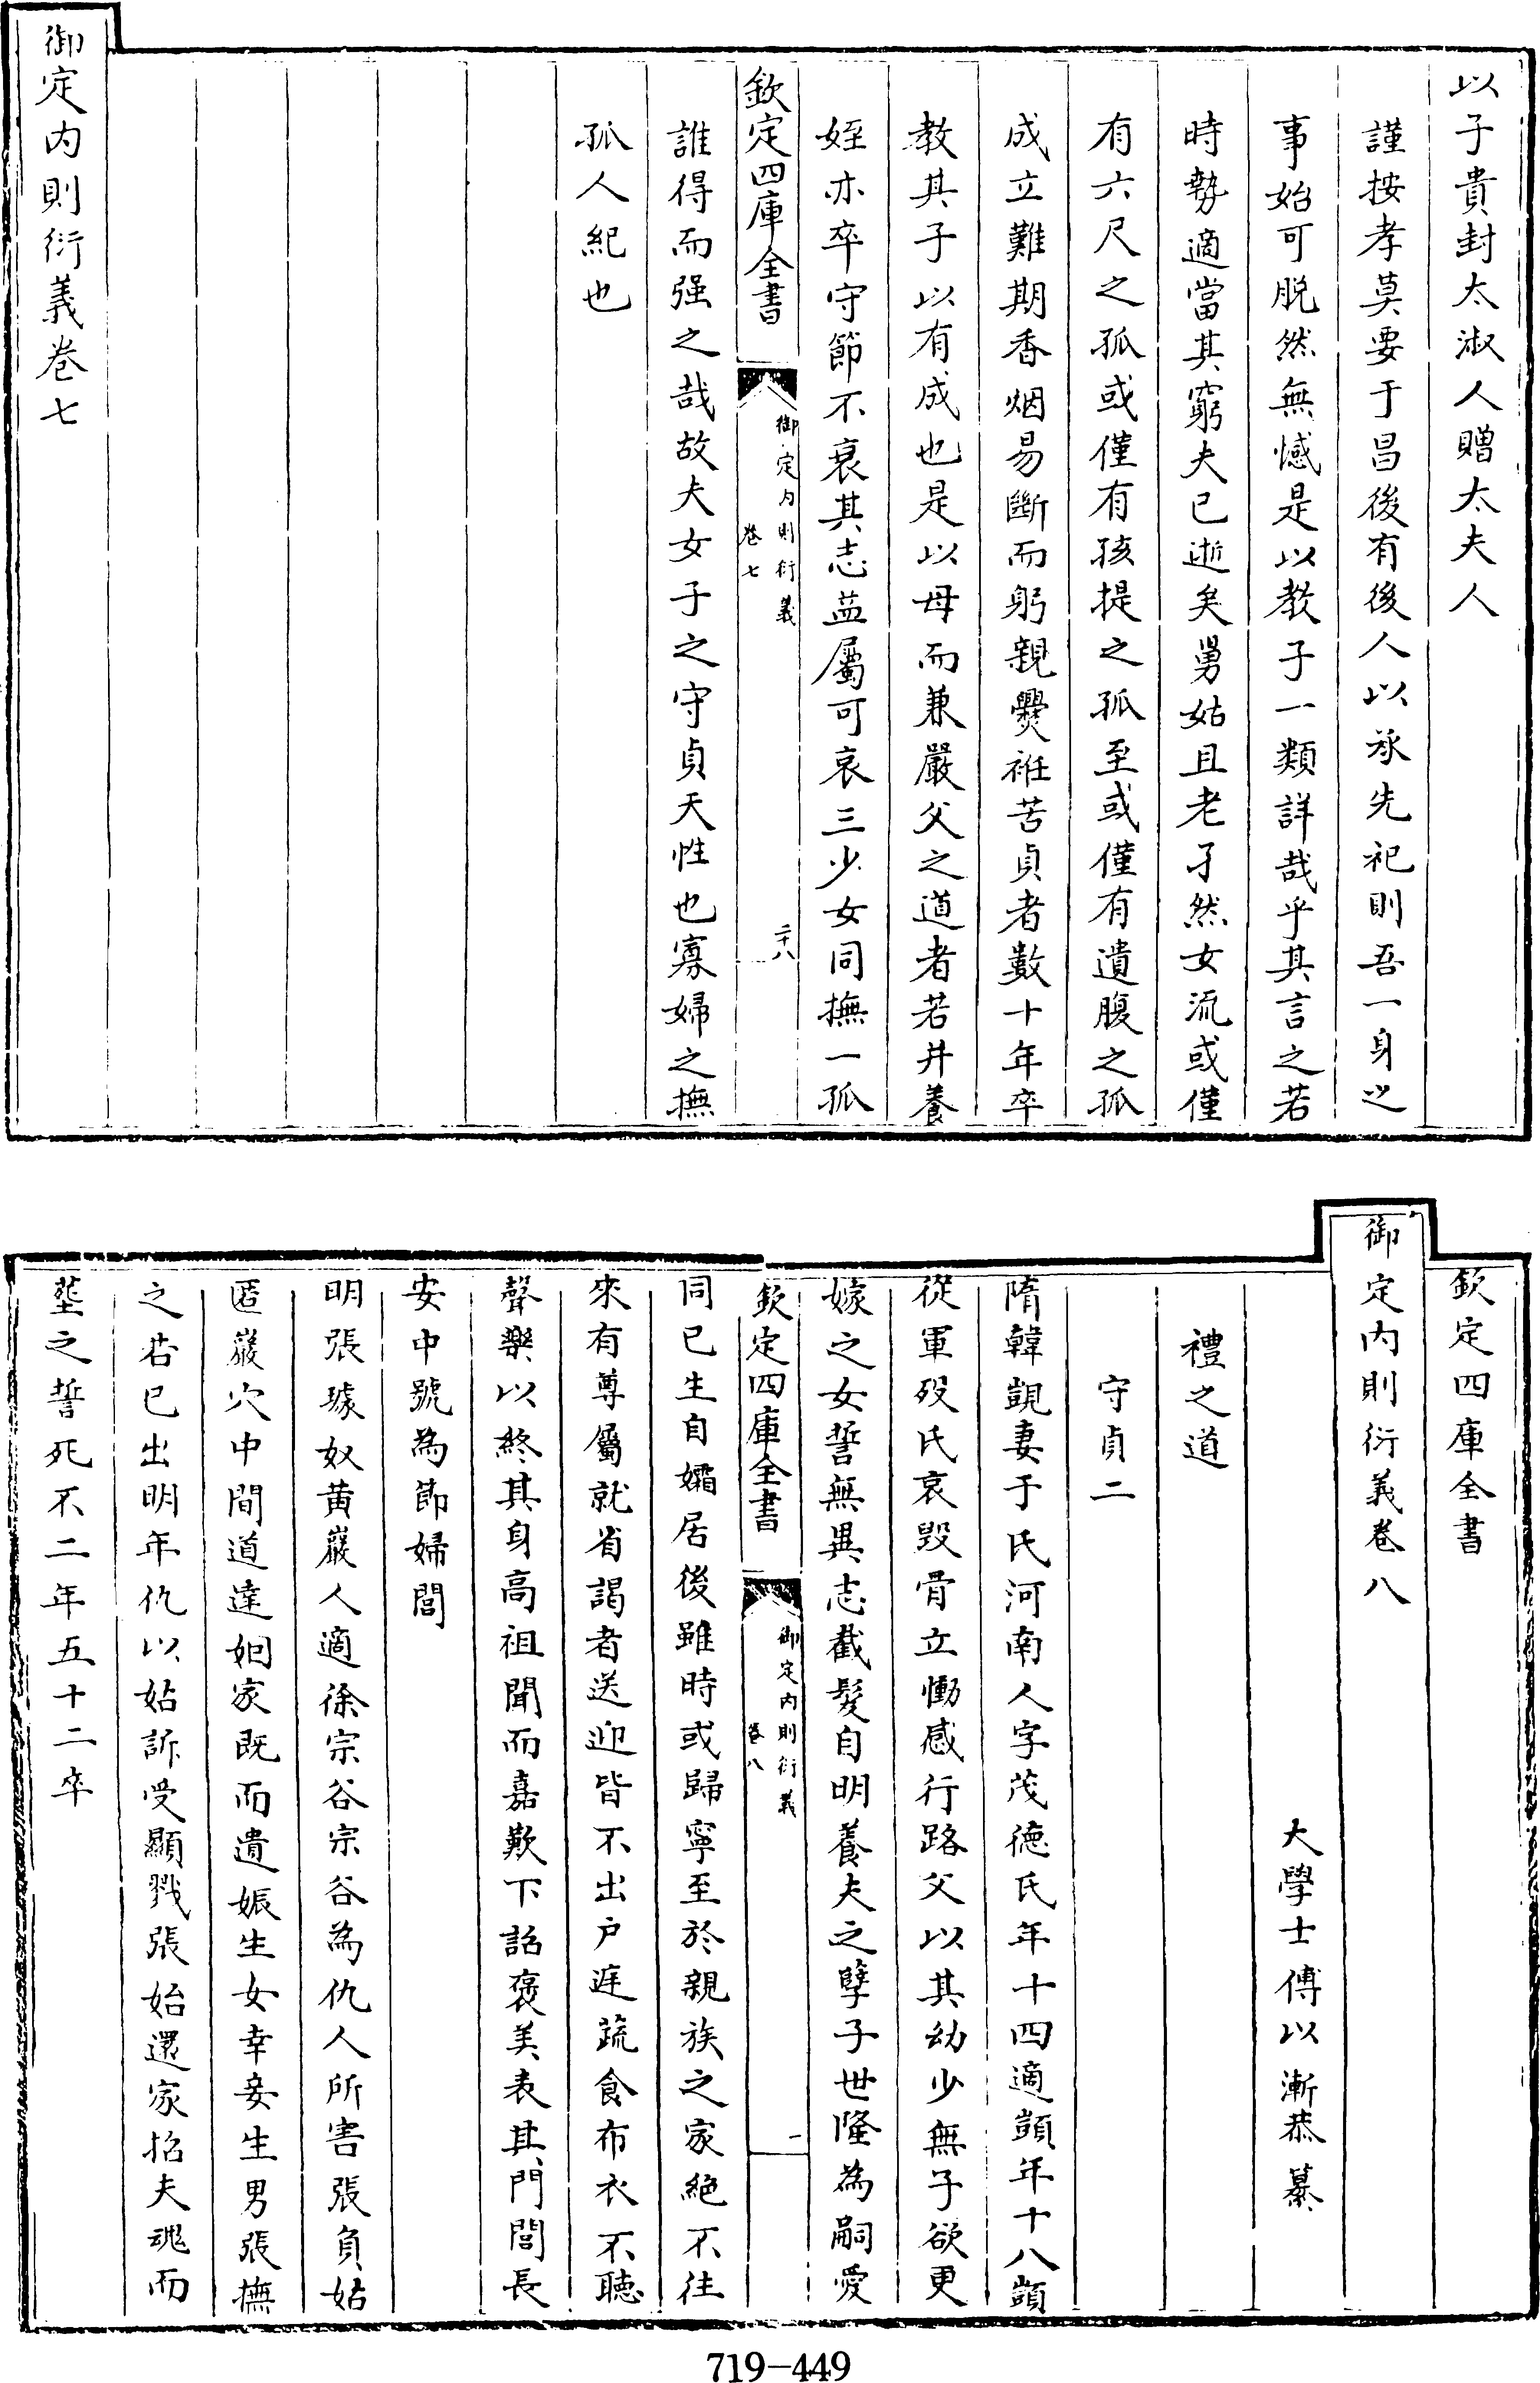 以子貴封太淑人贈太夫人
謹按孝莫要于昌後有後人以承先祀則吾一身之
事始可脱然無憾是以教子一類詳哉乎其言之若
時勢適當其窮夫已逝矣舅姑且老孑然女流或僅
有六尺之孤或僅有孩提之孤至或僅有遺腹之孤
成立難期香烟易斷而躬親爨袵苦貞者數十年卒
教其子以有成也是以母而兼嚴父之道者若井養
姪亦卒守節不衰其志蓝屬可哀三少女同撫一孤
欽定四庫全書
御定内則衍義
卷七
二十八
誰得而强之哉故夫女子之守貞天性也寡婦之撫
孤人紀也
御定内則衍義卷七
欽定四庫全書
御定内則衍義卷八
大學士傅以漸恭纂
禮之道
守貞二
隋韓覬妻于氏河南人字茂德氏年十四適顗年十八顗
從軍殁氏哀毁骨立慟感行路父以其幼少無子欲更
嫁之女誓無異志截髮自明養夫之孽子世隆為嗣愛
欽定四庫全書
御定内則衍義
卷八
一
同已生自孀居後雖時或歸寧至於親族之家絶不往
來有尊屬就省謁者送迎皆不出户庭蔬食布衣不聽
聲樂以終其身高祖聞而嘉歎下詔褒美表其門閭長
安中號為節婦閭
明張璩奴黄巖人適徐宗谷宗谷為仇人所害張負姑
匿巖穴中間道達姻家既而遺娠生女幸妾生男張撫
之若已出明年仇以姑訴受顯戮張始還家招夫魂而
塟之誓死不二年五十二卒
719-449